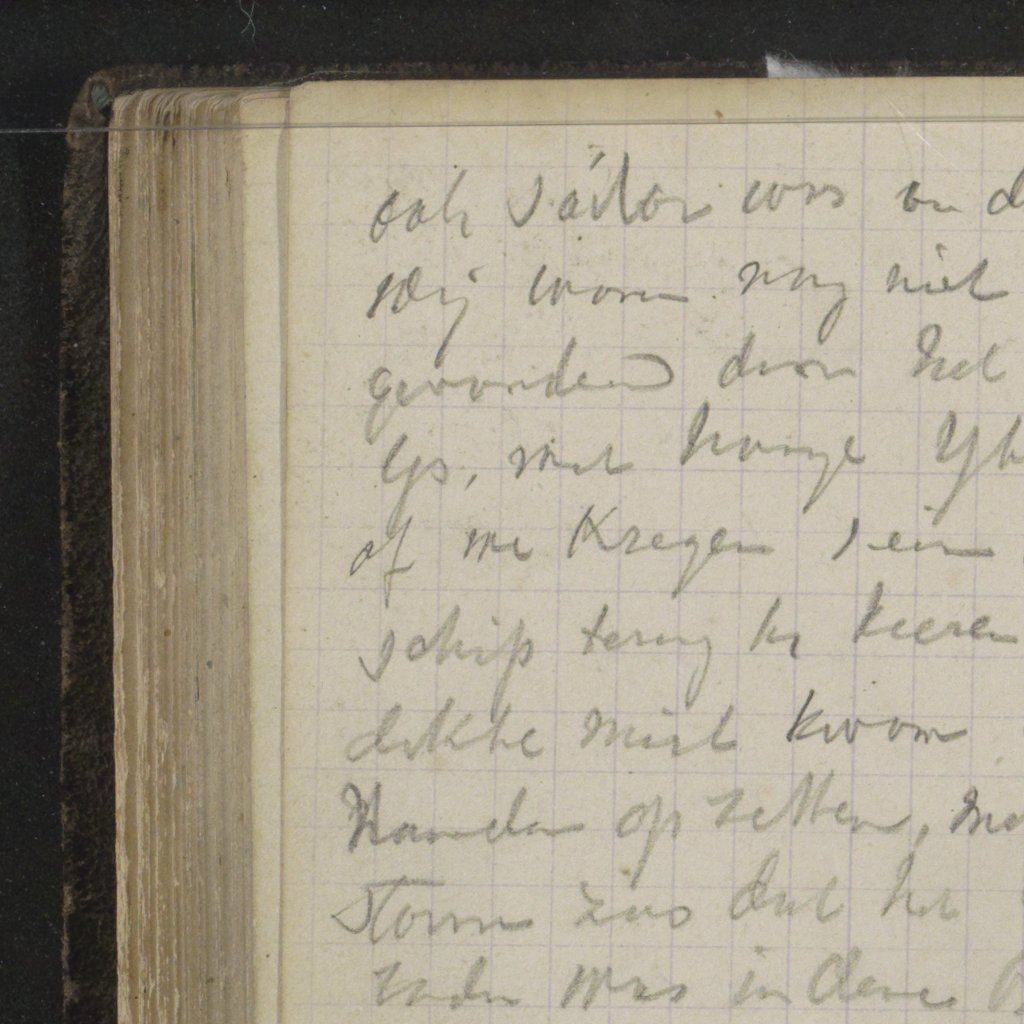 ook was en d
Wij waren nog niet
geworden door het
Ijs, met hooge
of we kregen sein
schip terug te keeren
dikke mist kwam
Handen op zetten, me
storm zoo dat het
was in deze